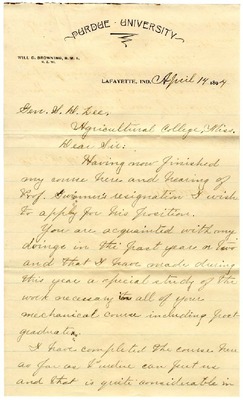 PURDUE - UNIVERSITY
WILL G. BROWNING, B.M.E.
LAFAYETTE, IND. April 14 1894
Gen. S. D. Lee.
Agricultural College, Miss.
Dear Sir:
Having now finished
my course here and hearing of
Prof. resignation I wish
to apply for his position.
You are acquainted with my
doings in the past years or two
and that I have made during
this year a special study of the
work necessary to all of your
mechanical course including post
graduation.
I have completed the course here
as far as Purdue can put us
and that is quite considerable in